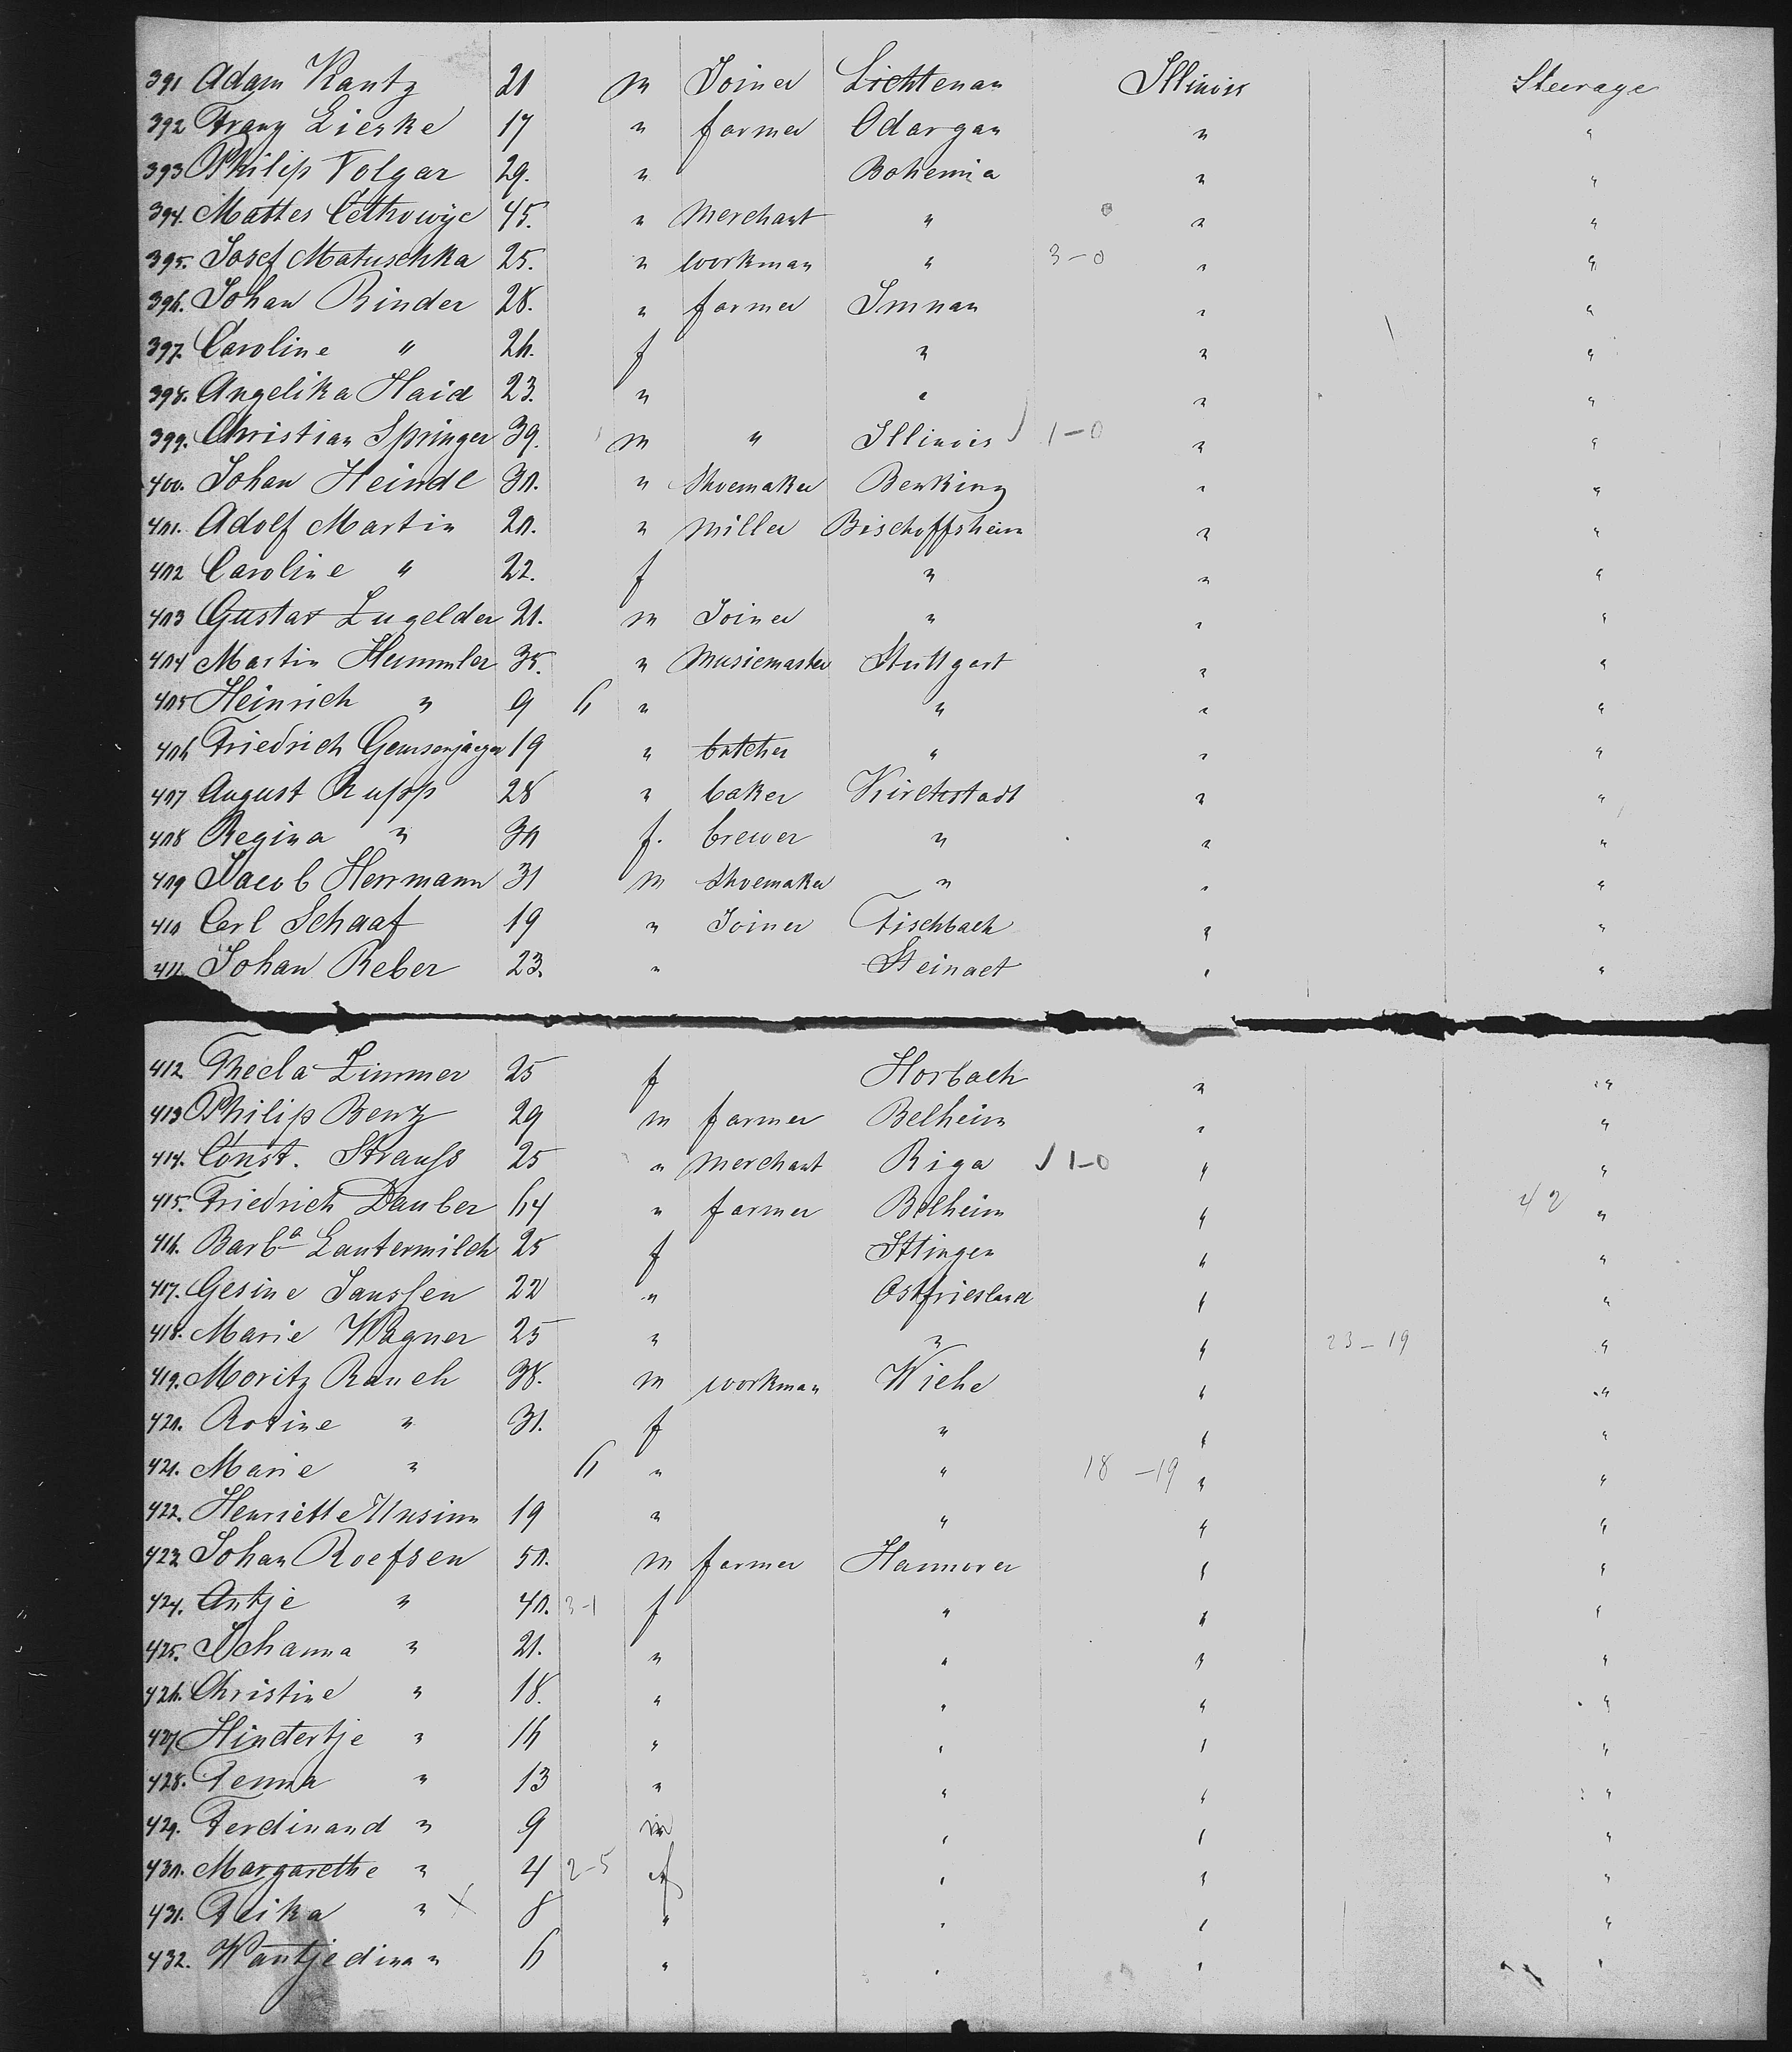 391 Adam Kautz 21 m Joiner Lichtenau Illinois Steerage
392 Franz Lieske 17 " farmer Odargau " "
393 Philip Volgar 29. " Bohemia " "
394. Mattes Cethowyc 45. " Merchant " " "
395. Josef Matuschka 25. " workman " 3-0 " "
396. Johan Binder 28. " farmer Imnau " "
397. Caroline " 26. f " " "
398. Angelika Haid 23. " " " "
399. Christian Springer 39. m " Illinois 1-0 " "
400. Johan Heindl 30. " Shoemaker Benking " "
401. Adolf Martin 20. " Miller Bischoffsheim " "
402 Caroline " 22. f " " "
403 Gustav Zugelder 21. m Joiner " " "
404 Martin Hummler 35. " Musicmaster Stuttgart " "
405 Heinrich " 9 6 " " " "
406 Friedrich Gemsenjaeger 19 " butcher " " "
407 August Rupp 28 " baker Kirchstadt " "
408 Regina " 30 f. brewer " " "
409 Jacob Herrmann 31 m Shoemaker " " "
410 Carl Schaaf 19 " Joiner Fischbach " "
411 Johan Reber 23. " Steinaet " "
412 Thecla Zimmer 25 f Horbach " "
413 Philip Benz 29 m farmer Belheim " "
414. Const. Strauss 25 " Merchant Riga 1-0 " "
415. Friedrich Dauber 64 " farmer Belheim " 42 "
416. Barba Lautermilch 25 f Ittingen " "
417. Gesine Janssen 22 " Ostfriesland " "
418. Marie Wagner 25 " " " 23-19 "
419. Moritz Rauch 38. m workman Wiehe " "
420. Rosine " 31. f " " "
421. Marie " 6 " " 18-19 " "
422. Henriette 19 " " " "
423 Johan Roefsen 50. m farmer Hannover " "
424. Antje " 40. 3-1 f " " "
425. Johanna " 21. " " " "
426. Christine " 18. " " " "
427 Hindertje " 16 " " " "
428. Fenna " 13 " " " "
429. Ferdinand " 9 m " " "
430. Margarethe " 4 2-5 f " " "
431. Feika " X 8 " " " "
432. Wantjedina " 6 " " " "